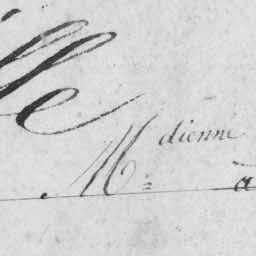 lle
M.=dienne à